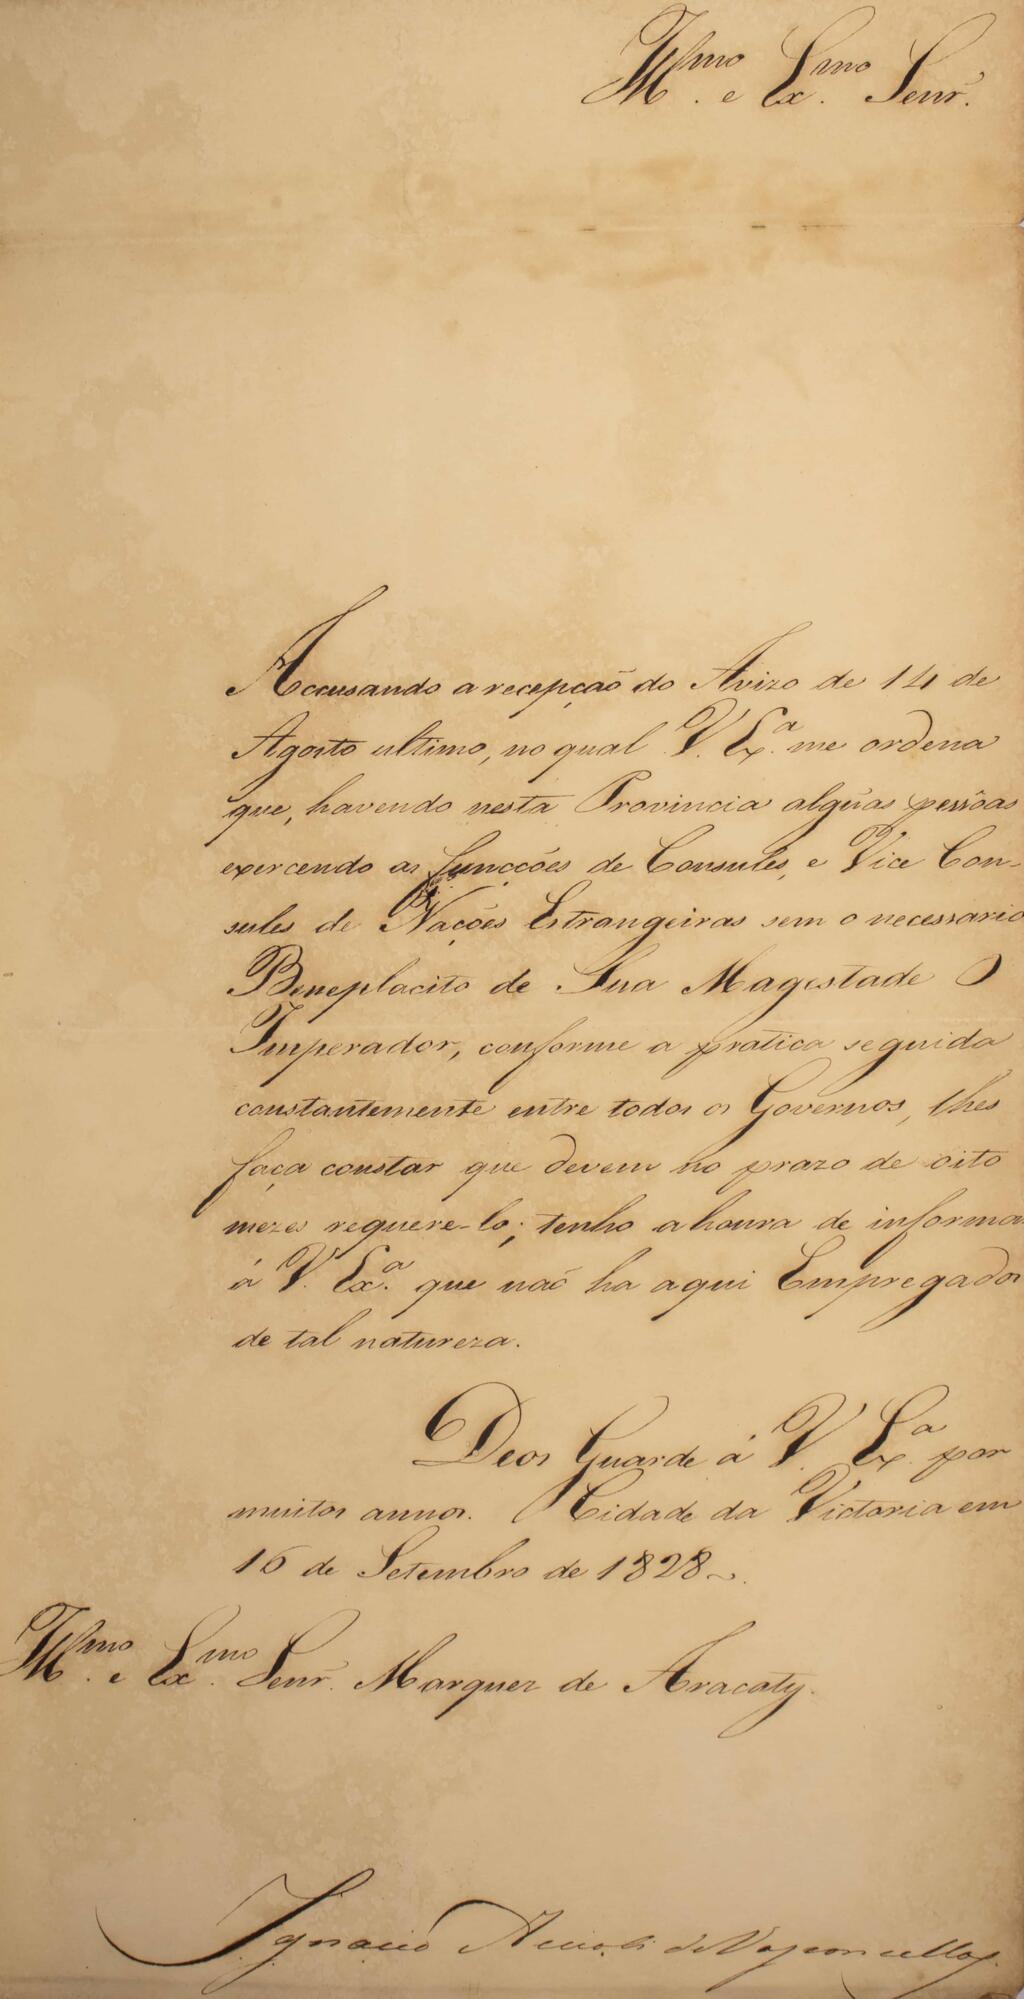 Illmo. e Exmo. Senr.
Accusando a recepção do Avizo de 14 de
Agosto ultimo, no qual V. Exa. me ordena
que, havendo nesta Provincia algũas pessôas
exercendo as funcções de Consules, e Vice Con-
sules de Nações Estrangeiras sem o necessario
Beneplacito de Sua Magestade O
Imperador, conforme a pratica seguida
constantemente entre todos os Governos, lhes
faça constar que devem no prazo de oito
mezes requere-lo; tenho a honra de informar
á V. Exa. que naõ ha aqui Empregados
de tal natureza.
Deos Guarde á V. Exa. por
muitos annos. Cidade da Victoria em
16 de Setembro de 1828
Illmo. e Exmo. Senr. Marquez de Aracaty.
Ignacio Accioli de Vasconcellos